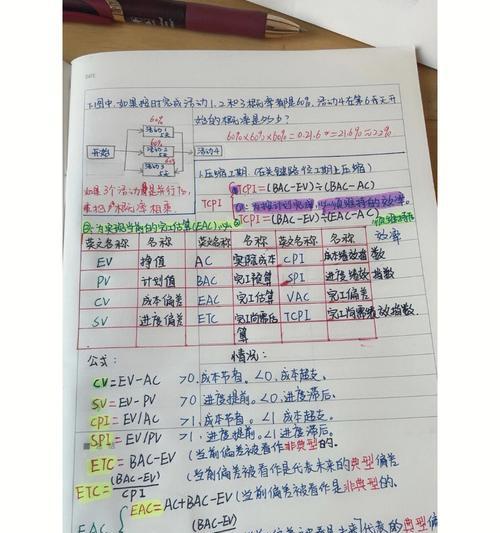 DATE
下图中,如果按时完成活动1、2和3概率都是60%,活动4在第6天开
始的概率是多少?
60%
60%×60%×60%=0.216=21.6%≈22%
活动1
5天
开始
活动2
5天
活动4
60%
活动3
5天
如果3个活动都是并行的,
1.压缩工期。(在关键路径工期上压缩)
TCPI
①TCPI=(BAC-EV)÷(BAC-AC)
②TCPI=(BAC-EV)÷(EAC-AC)
效率
英文名称 名称 英文名称 名称 英文名称 名称
EV 挣值 AC 实际成本 CPI 成本绩效指数
PV 计划值 BAC 完工预算 SPI 进度绩效指数
CV 成本偏差 EAC 完工估算 VAC 完工偏差
SV 进度偏差 ETC 完工尚需估算 TCPI 完工尚需绩效指数
公式: 情况:
CV=EV-AC >0,成本节省。<0,成本超支。
SV=EV-PV >0 进度提前。<0,进度滞后。
CPI=EV/AC >1,成本节省。<1 成本超支。
SPI=EV/PV >1,进度提前。<1 进度滞后。
ETC=BAC-EV (当前偏差被看作非典型的。
ETC=(BAC-EV)/CPI (当前偏差被看作是代表未来的典型偏差
EAC=AC+BAC-EV (当前偏差被看作是非典型的。
EAC
(BAC-EV)
代表的典型偏